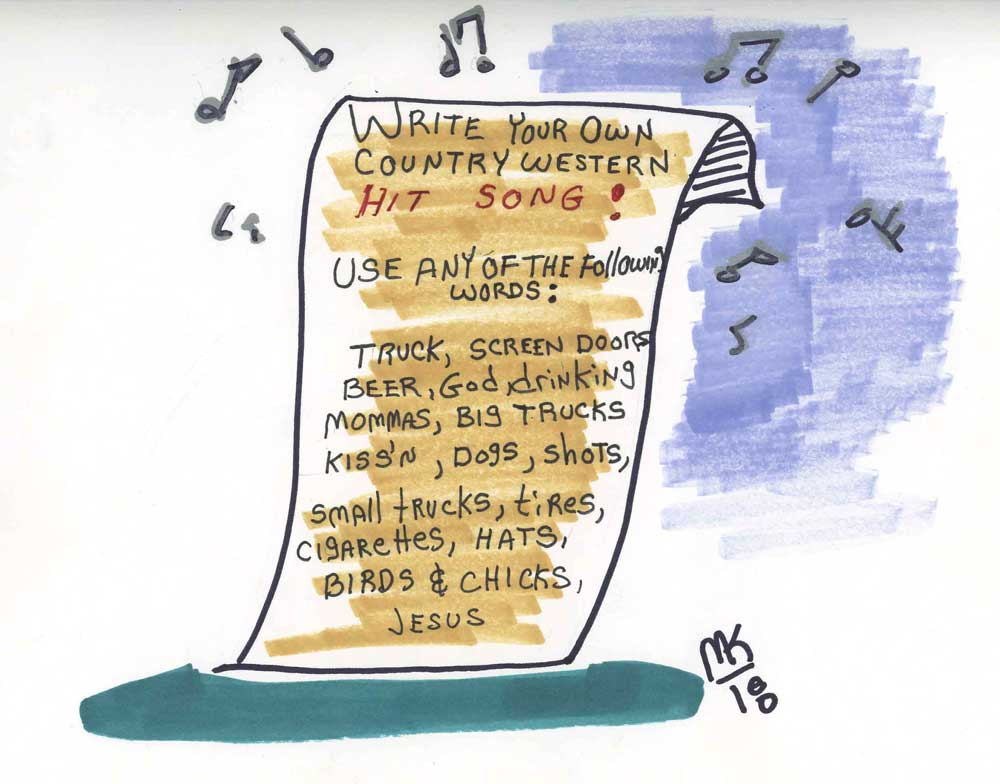 WRITE YOUR OWN
COUNTRY WESTERN
HIT SONG!
USE ANY OF THE Following
WORDS:
TRUCK, SCREEN DOORS
BEER, God, drinking
MOMMAS, BIG TRUCKS
KISS'N, DOgS, SHOTS,
SMAll tRUCKS, tIRES,
CIgAREttES, HATS,
BIRDS & CHICKS,
JESUS
MK
18